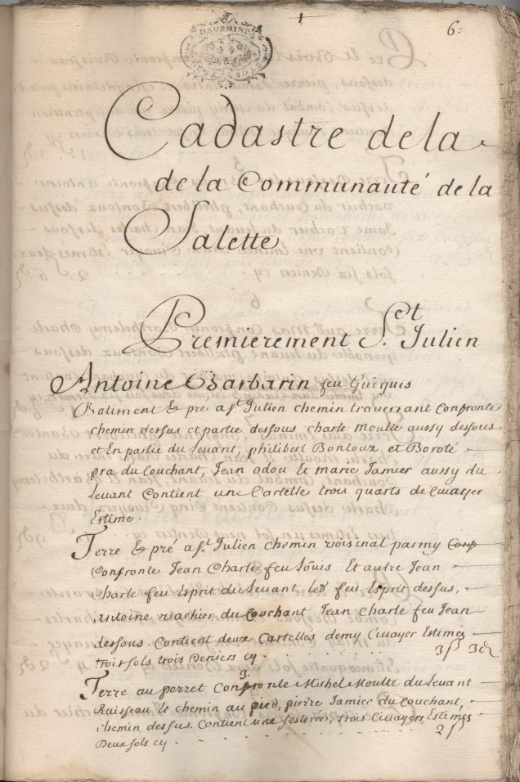 6.
DAUPHINÉ
Cadastre de la
de la Communauté de la
Salette
Premierement St. Julien
Antoine Barbarin feu Guigues
Batiment & pré a St. Julien chemin traversant Confronte
chemin dessus et partie dessous charle Moulte aussy dessous
et En partie du Levant, philibert Bonloux et
pra du Couchant, Jean adou et marie Jamier aussy du
Levant Contient une Cartelle trois quarts de Civayer
Estimé.
Terre & pré a St. Julien chemin voisinal parmy
Confronte Jean Charle feu Loüis Et autre Jean
Charle feu Esprit du Levant, led. feu Esprit dessus,
Antoine vachier du Couchant Jean Charle feu Jean
dessous Contient deux Cartelles demy Civayer Estimez
trois sols trois Deniers cy. 3s 3d
3.
Terre au perret Confronte Michel Moulte du Levant
Ruisseau le chemin au pied, pierre Jamier du Couchant,
chemin dessus. Contient une sesteree, trois Civayers Estimez
Deux sols cy 2s